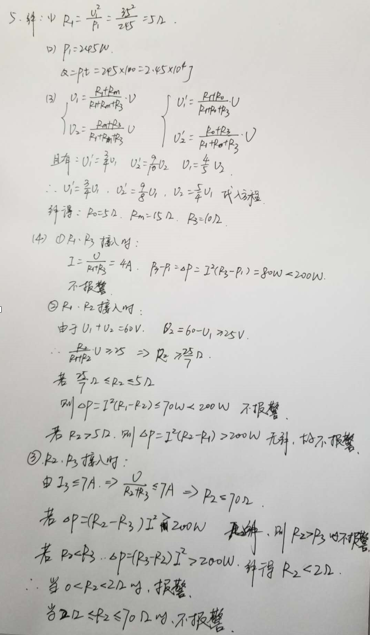 5. 解: (1) R₁ = U₁²/P₁ = 35²/245 = 5Ω.
(2) P₁ = 245W
Q = P₁t = 245×100 = 2.45×10⁴J
(3) { U₁ = (R₁+Rm)/(R₁+Rm+R₃)·U { U₁' = (R₁+R₀)/(R₁+R₀+R₃)·U
U₂ = (Rm+R₃)/(R₁+Rm+R₃)·U U₂' = (R₀+R₃)/(R₁+R₀+R₃)·U
且有: U₁' = 3/4 U₁ U₂' = 9/10 U₂ U₁ = 4/5 U₂
∴ U₁' = 3/4 U₁ . U₂' = 9/8 U₁ . U₂ = 5/4 U₁ 代入方程
解得: R₀=5Ω. Rm=15Ω. R₃=10Ω.
(4) ① R₁. R₃ 接入时:
I = U/(R₁+R₃) = 4A. P₃-P₁=ΔP = I²(R₃-R₁) = 80W < 200W.
不报警
② R₁. R₂ 接入时:
由于 U₁+U₂=60V. U₂=60-U₁ ≥25V.
∴ R₂/(R₁+R₂) U ≥25 ⇒ R₂ ≥ 25/7 Ω.
若 25/7 Ω ≤ R₂ ≤ 5Ω
则 ΔP = I²(R₁-R₂) ≤ 70W < 200W 不报警.
若 R₂>5Ω. 则 ΔP = I²(R₂-R₁) > 200W 无解, 故不报警.
③ R₂. R₃ 接入时:
由 I₃ ≤ 7A. ⇒ U/(R₂+R₃) ≤ 7A ⇒ R₂ ≤ 70Ω.
若 ΔP = (R₂-R₃) I² 200W 则 R₂>R₃ 时不报警
若 R₂<R₃. ΔP = (R₃-R₂) I² > 200W. 解得 R₂ < 2Ω.
∴ 当 0 < R₂ < 2Ω 时, 报警.
当 2Ω ≤ R₂ ≤ 70Ω 时, 不报警.